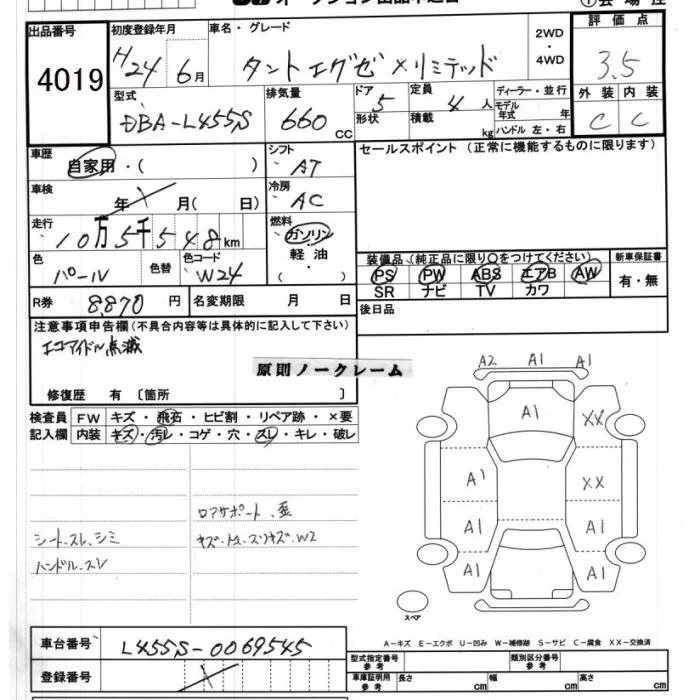 出品番号
4019
初度登録年月
H24 6月
車名・グレード
タントエグゼ Xリミテッド
2WD
・
4WD
評価点
3.5
外装 内装
C C
型式
DBA-L455S
排気量
660 CC
ドア
5
形状
定員
4 人
積載
kg
ディーラー・並行
モデル
年式 年
ハンドル 左・右
車歴
自家用・( )
シフト
AT
セールスポイント (正常に機能するものに限ります)
車検
年 月( 日)
冷房
AC
走行
10万5千548km
燃料
ガソリン
軽油
( )
色
パール
色替
色コード
W24
装備品(純正品に限り○をつけてください)
PS PW ABS エアB AW
SR ナビ TV カワ
新車保証書
有・無
R券 8,870 円
名変期限 月 日
後日品
注意事項申告欄(不具合内容等は具体的に記入して下さい)
エコアイドル点滅
原則ノークレーム
修復歴 有 [箇所 ]
検査員
記入欄
FW キズ・飛石・ヒビ割・リペア跡・×要
内装 キズ・汚レ・コゲ・穴・スレ・キレ・破レ
シート.スレ.シミ
ハンドル.スレ
ロアサポート.歪
A2 A1 A1
A1 XX
A1 XX
A1 A1
A1 A1
スペア
A-キズ E-エクボ U-凹み W-補修跡 S-サビ C-腐食 XX-交換済
車台番号
L455S-0069545
登録番号
型式指定番号
参考
類別区分番号
参考
車庫証明用
参考
長さ cm
幅 cm
高さ cm